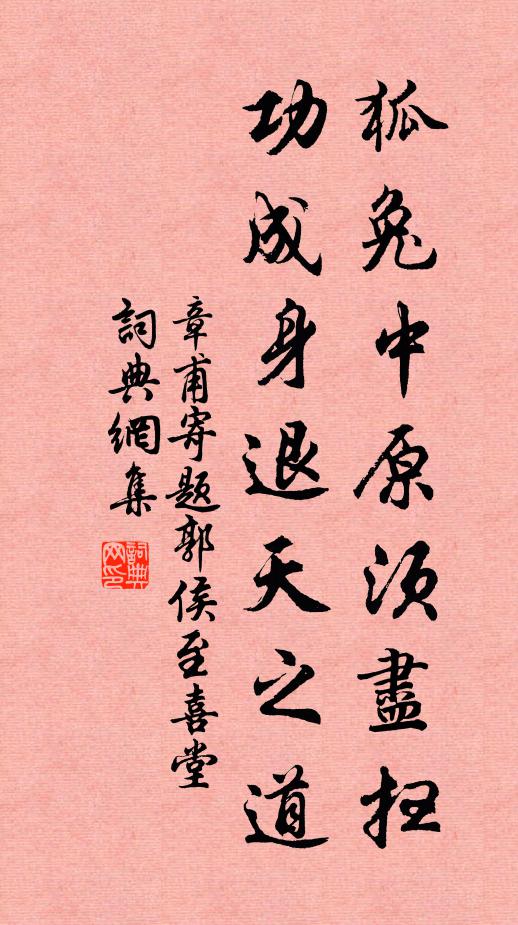 狐兔中原須盡掃
功成身退天之道
章甫寄題郭侯至喜堂
詞典網集
詞典網印